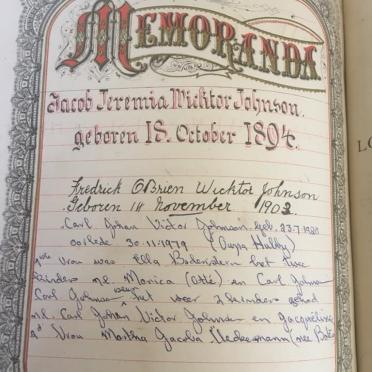 MEMORANDA
Jacob Jeremia Wicktor Johnson.
geboren 18. October 1894.
Fredrick OBrien Wicktor Johnson
Geboren 14 November 1902
Carl Johan Victor Johnson, geb. 23.7.1920
oorlede 30.11.1979 (Oupa
vrou was Ella Bodenstein het twee
kinders nl. Monica (Ottie) en Carl Johan
Carl Johan het weer 2 kinders gehad
nl. Carl Johan Victor Johnson en Jacqueline
Vrou Martha Jacoba (nee
L